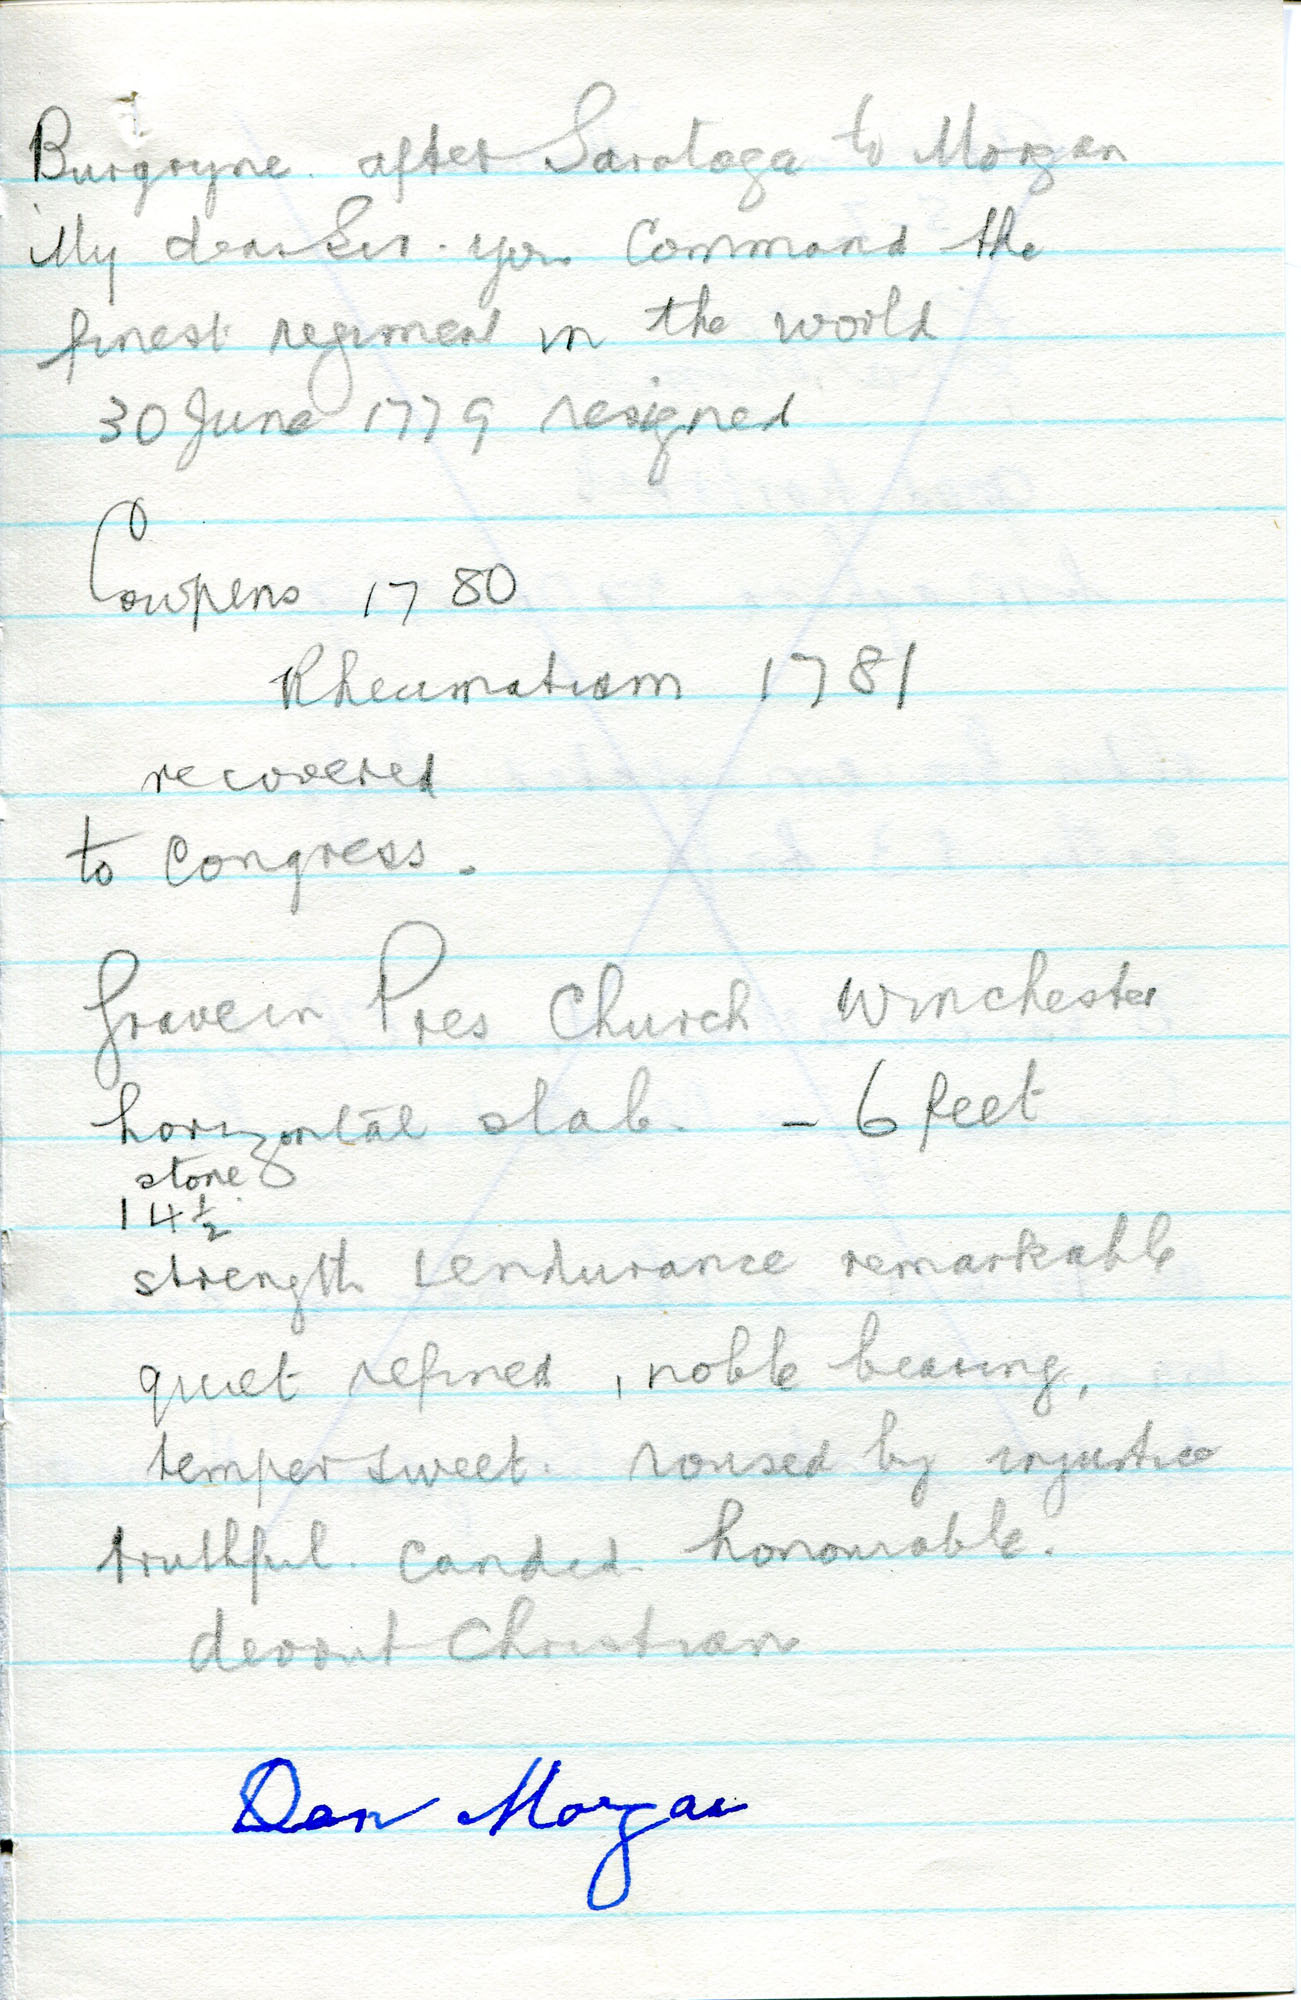 Burgoyne. after Saratoga to Morgan
'My dear Sir. you command the
finest regiment in the world
30 June 1779 resigned
Cowpens 1780
Rheumatism 1781
recovered
to Congress.
Grave in Pres Church Winchester
horizontal slab. – 6 feet
stone
14½
strength & endurance remarkable
quiet refined, noble bearing,
temper sweet. roused by injustice
truthful. candid. honourable.
devout Christian
Dan Morgan